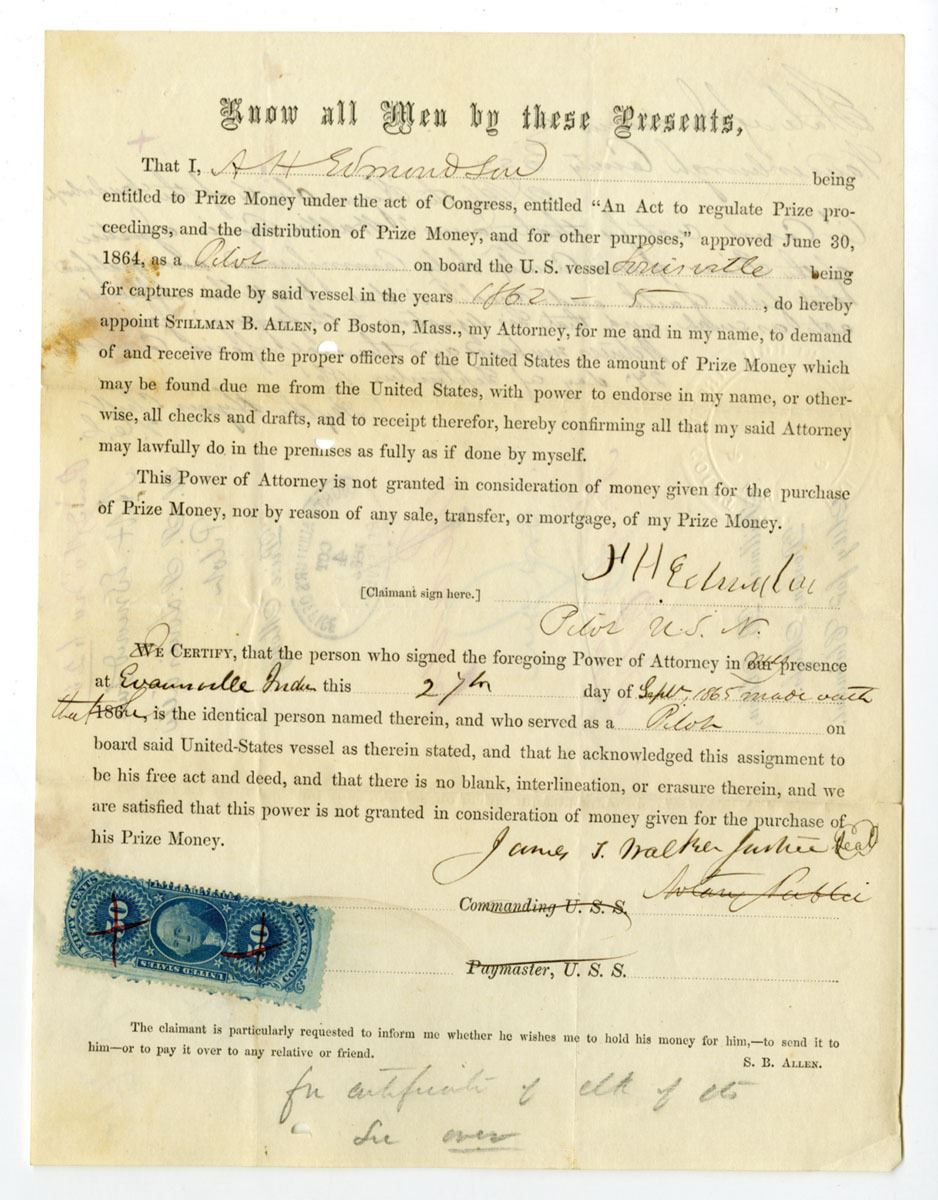 Know all Men by these Presents,
That I, A H Edmondson being
entitled to Prize Money under the act of Congress, entitled “An Act to regulate Prize pro-
ceedings, and the distribution of Prize Money, and for other purposes,” approved June 30,
1864, as a Pilot on board the U. S. vessel Louisville being
for captures made by said vessel in the years 1862 – 5, do hereby
appoint STILLMAN B. ALLEN, of Boston, Mass., my Attorney, for me and in my name, to demand
of and receive from the proper officers of the United States the amount of Prize Money which
may be found due me from the United States, with power to endorse in my name, or other-
wise, all checks and drafts, and to receipt therefor, hereby confirming all that my said Attorney
may lawfully do in the premises as fully as if done by myself.
This Power of Attorney is not granted in consideration of money given for the purchase
of Prize Money, nor by reason of any sale, transfer, or mortgage, of my Prize Money.
[Claimant sign here.] H Edmondson
Pilot U. S. N.
WE CERTIFY, that the person who signed the foregoing Power of Attorney in our my presence
at Evansville Inda this 27th day of Sept. 1865 made oath
that he 186 , is the identical person named therein, and who served as a Pilot on
board said United-States vessel as therein stated, and that he acknowledged this assignment to
be his free act and deed, and that there is no blank, interlineation, or erasure therein, and we
are satisfied that this power is not granted in consideration of money given for the purchase of
his Prize Money.
James T. Walker Justice Seal
Commanding U. S. S. Notary Public
Paymaster, U. S. S.
FIFTY CENTS
50
50
CONVEYANCE
UNITED STATES
The claimant is particularly requested to inform me whether he wishes me to hold his money for him,—to send it to
him—or to pay it over to any relative or friend.
S. B. ALLEN.
for certificate of clk of cts
See over